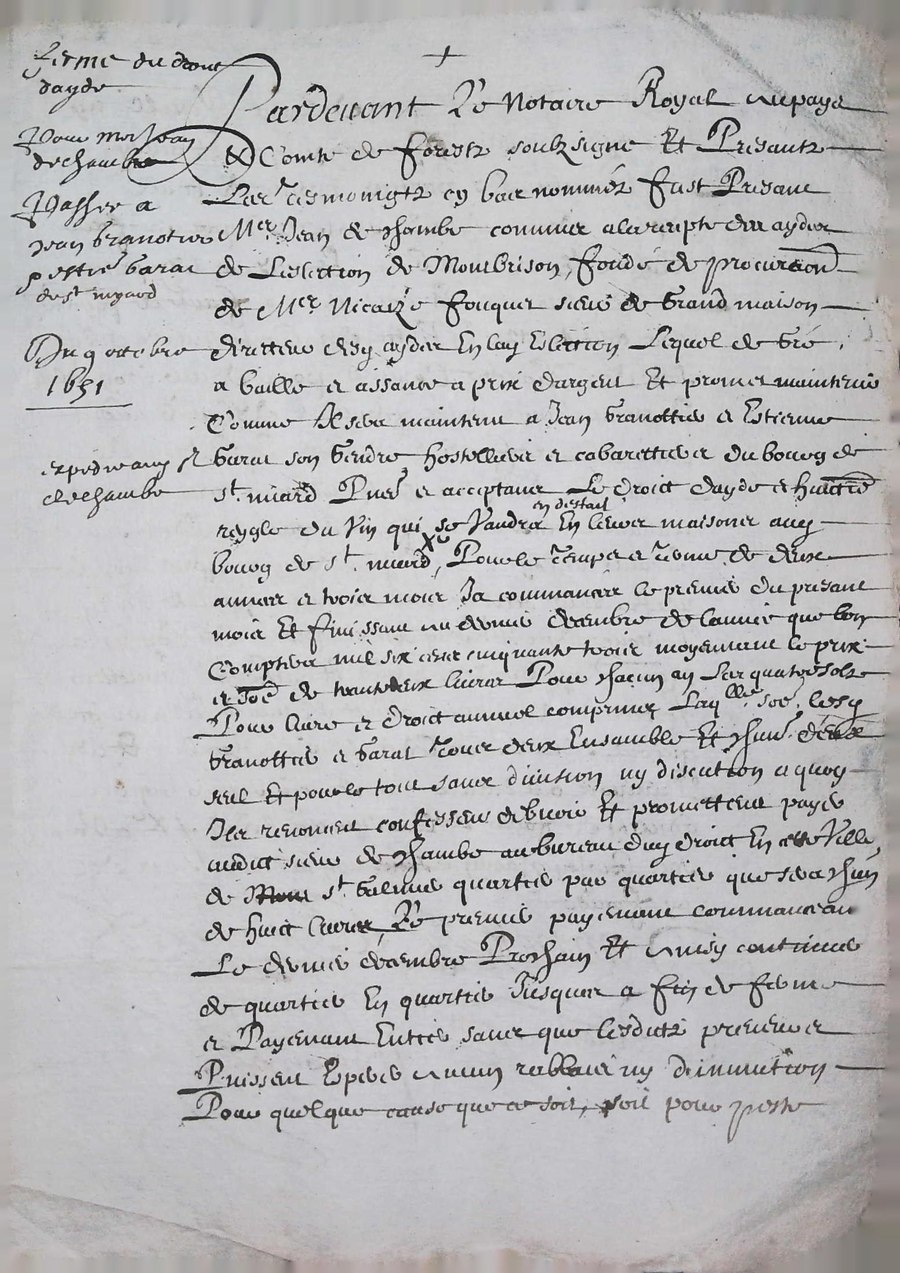 ferme du droit
dayde
Pour mre Jean
dechambe
Passee a
Jean Granottier
et Estien Garat
de st myard
Du 9 octobre
1651
expedie aud sr
dechambe
+
Pardeuant Le Notaire Royal au pays
& Comte de Forestz soubzsigne Et Presantz
Les tesmoingtz cy bas nommés fust Presant
Mer Jean de chambe commis a la recepte des aydes
de Leslection de Montbrison, fondé de procuration
de Mer Nicaize fouquer sieur de Grand maison
directeur desd aydes En lad Eslection Lequel de Gré,
a baille et assance a prix dargent Et promet maintenir
Comme Il sera maintenu a Jean Granottier et Estienne
Garat son Gendre hostelliers et cabarettiers du bourg de
st. miard Pnts et acceptans Le droict dayde et huictie
reyglé du Vin qui se Vandra en destail En leurs maisons aud
bourg de st. miard, Pour le temps et terme de deux
annees et trois mois Ja commances le premier du presant
mois Et finissant au dernier decembre de lannee que lon
Comptera mil six cens cinquante trois moyennant le prix
et soe de trante deux liures Pour chacun an Les quatre solz
Pour liure et droict annuel comprins Laqlle soe. lesd
Granottier et Garat tous deux Ensamble Et chun deux
seul Et pour le tout sans diuision ny discution a quoy
Ilz renoncent confessent debuoir Et promettent payer
audict sieur de chambe au bureau dud droict En cette Ville
de st Galmier quartier par quartier que sera chun
de huict liures, Le premier payement commanceant
Le dernier decembre Prochain Et ainsy continuer
de quartier En quartier Jusques a fin de ferme
et Payemant Entier sans que lesdictz preneurs
Puissent Esperer aucun rabbais ny diminution
Pour quelque cause que ce soit, soit pour peste